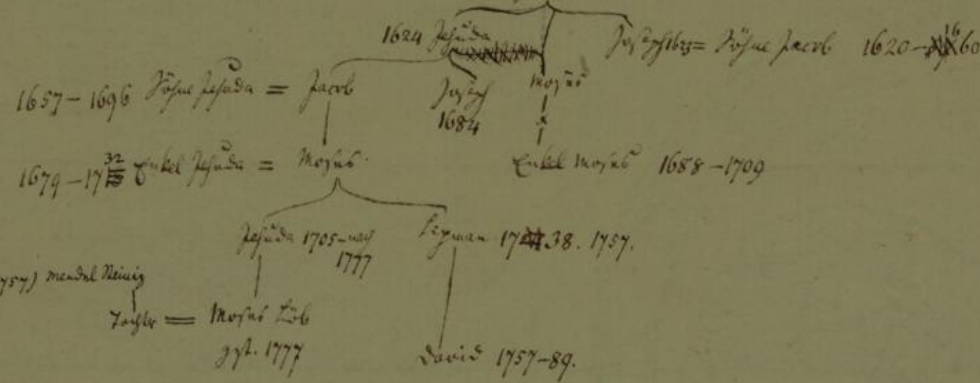 1624 Jehuda
Joseph 1625 = Söhne Jacob 1620-1660
1657-1696 Söhne Jehuda = Jacob Joseph Moses
1684
1679-1732 Enkel Jehuda = Moses Enkel Moses 1688-1709
Jehuda 1705-nach Lipman 17 38. 1757.
1777
757) Mendel
Tochter = Moses Löb
gest. 1777 David 1757-89.